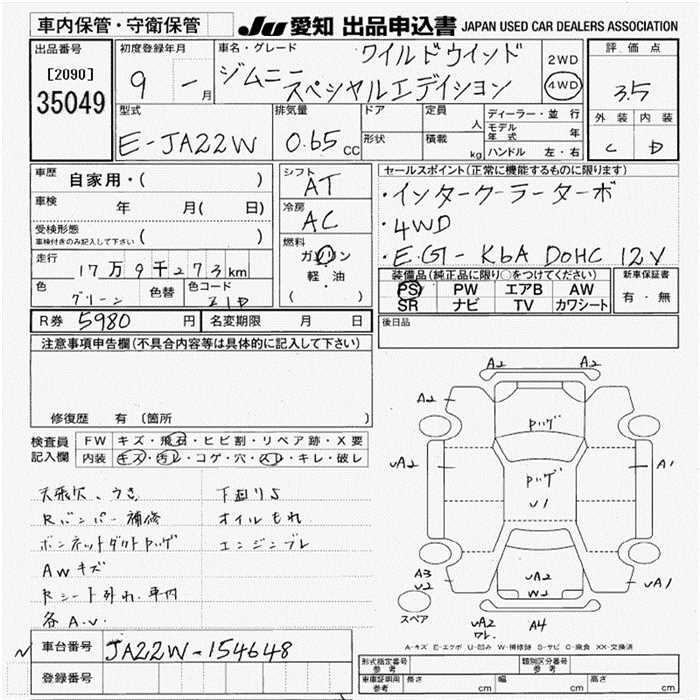 車内保管・守衛保管
JU 愛知 出品申込書 JAPAN USED CAR DEALERS ASSOCIATION
出品番号
[2090]
35049
初度登録年月
9 - 月
車名・グレード
ワイルドウインド
ジムニー スペシャルエディション
2WD
4WD
評価点
3.5
外装 内装
C D
型式
E-JA22W
排気量
0.65 CC
ドア
形状
定員 人
積載 kg
ディーラー・並行
モデル年式 年
ハンドル 左・右
車歴 自家用・( )
車検 年 月( 日)
受検形態
車検付きのみ記入して下さい ( )
走行 17万9千273km
色 グリーン 色替 色コード Z1D
シフト AT
冷房 AC
燃料
ガソリン
軽・油
( )
セールスポイント(正常に機能するものに限ります)
・インタークーラーターボ
・4WD
・E.G-K6A DOHC 12V
装備品(純正品に限り○をつけてください)
PS PW エアB AW
SR ナビ TV カワシート
新車保証書
有・無
R券 5980 円 名変期限 月 日
後日品
注意事項申告欄(不具合内容等は具体的に記入して下さい)
修復歴 有 (箇所 )
検査員記入欄
FW キズ・飛石・ヒビ割・リペア跡・X要
内装 キズ・汚レ・コゲ・穴・スレ・キレ・破レ
天張欠、うき
Rバンパー補修
ボンネットダクトハゲ
AWキズ
Rシート外れ、車内
各A.U.
下廻りS
オイルもれ
エンジンブレ
A2 A2
A2
ハゲ
UA2 A1
ハゲ
U1
A3
U2
UA2
W2
UA1
スペア
UA2
ワレ
A4
A-キズ E-エクボ U-凹み W-補修跡 S-サビ C-腐食 XX-交換済
車台番号 JA22W-154648
登録番号
型式指定番号 参考
類別区分番号 参考
車庫証明用 参考 長さ cm 幅 cm 高さ cm